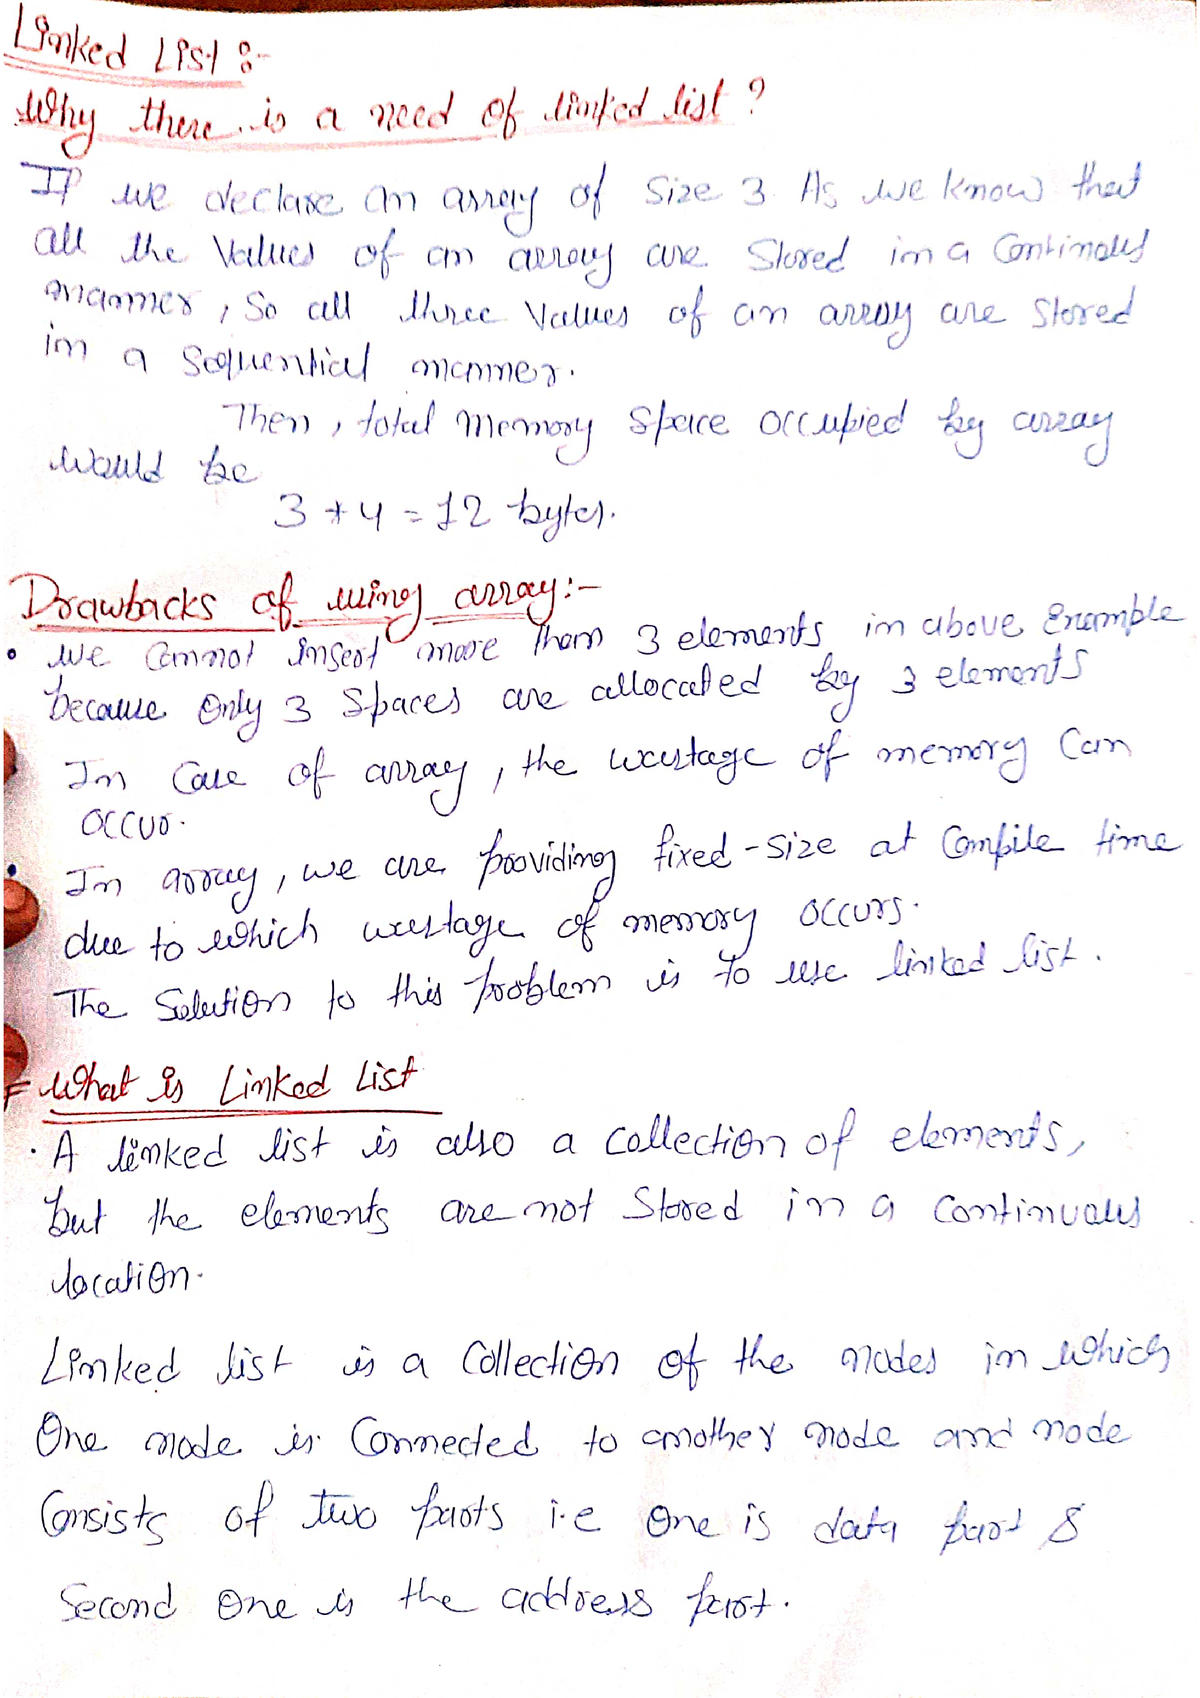 Linked List :-
Why there is a need of linked list ?
If we declare an array of Size 3. As we know that
all the Values of an array are Stored in a Continous
manner, So all three Values of an array are Stored
in a Sequential manner.
Then, total Memory Space occupied by array
would be
3 * 4 = 12 bytes.
Drawbacks of using array:-
• we Cannot insert more than 3 elements in above Example
because Only 3 Spaces are allocated by 3 elements
In Case of array, the wastage of memory Can
occur.
• In array, we are providing fixed-size at Compile time
due to which wastage of memory occurs.
The Solution to this problem is to use linked list.
What is Linked List
• A linked list is also a Collection of elements,
but the elements are not Stored in a Continuous
location.
Linked list is a Collection of the nodes in which
One node is Connected to another node and node
Consists of two parts i.e One is data part &
Second One is the address part.